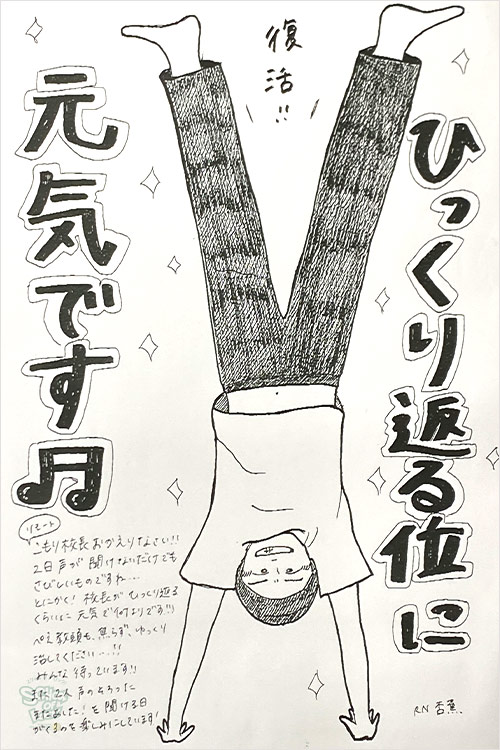 復活!!
ひっくり返る位に
元気です♫
リモート
こもり校長おかえりなさい!!
2日声が聞けないだけでも
さびしいものですね…
とにかく!校長がひっくり返る
くらいに元気で何よりです!!
ぺえ教頭も、焦らず、ゆっくり
治してください…!!
みんな待っています!!
また2人の声のそろった
また明日!を聞ける日
がくるのを楽しみにしています!
RN 杏蕉